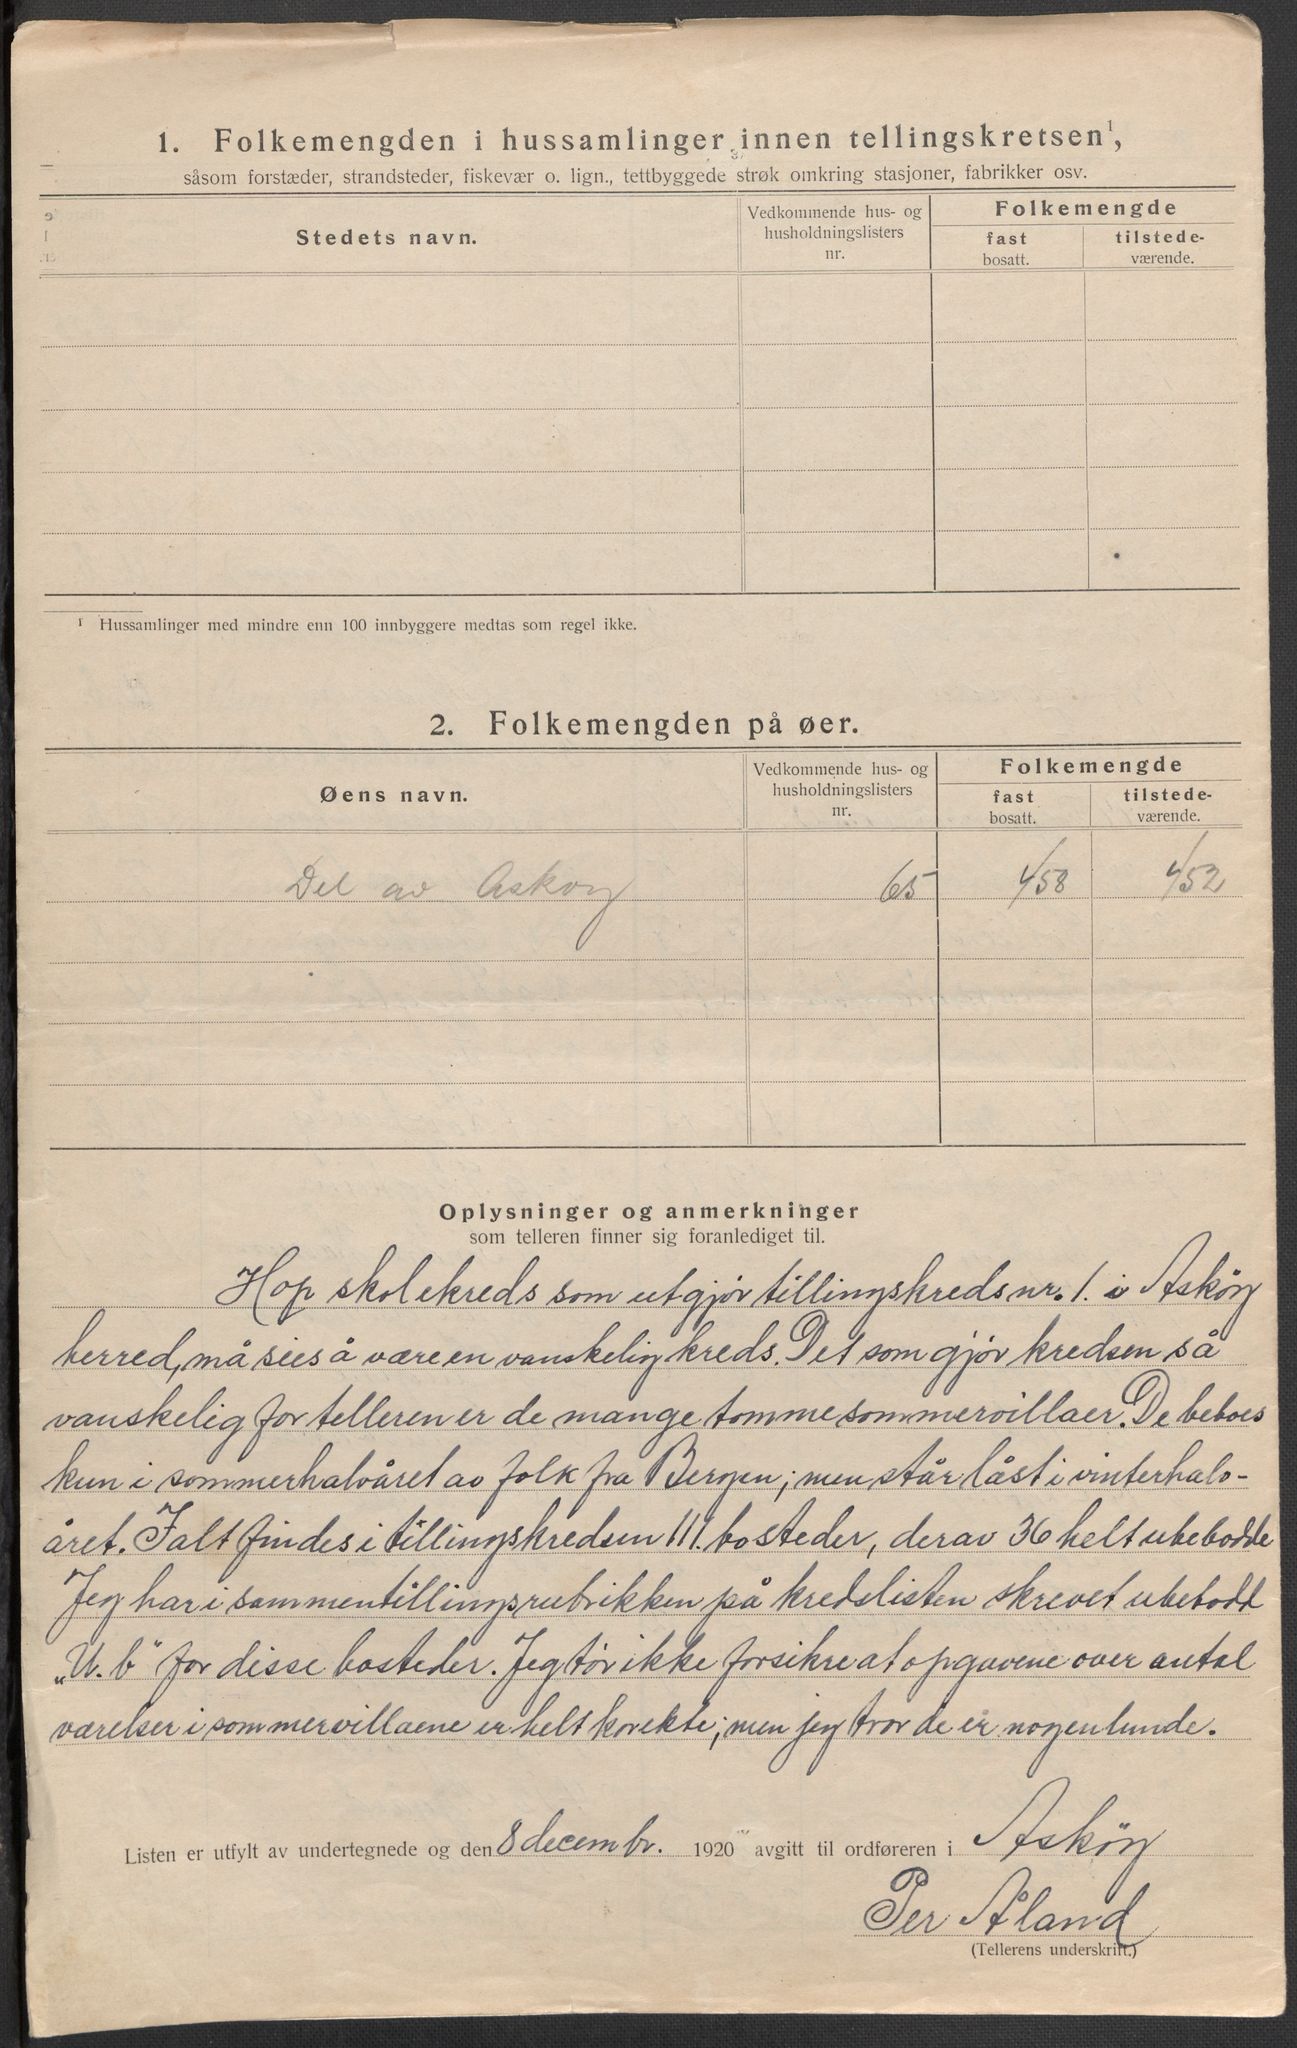 1. Folkemengden i hussamlinger innen tellingskretsen¹,
såsom forstæder, strandsteder, fiskevær o. lign., tettbyggede strøk omkring stasjoner, fabrikker osv.
Stedets navn.
Vedkommende hus- og
husholdningslisters
nr.
Folkemengde
fast
bosatt.
tilstede-
værende.
¹ Hussamlinger med mindre enn 100 innbyggere medtas som regel ikke.
2. Folkemengden på øer.
Øens navn.
Vedkommende hus- og
husholdningslisters
nr.
Folkemengde
fast
bosatt.
tilstede-
værende.
Del av Askøy 65 458 452
Oplysninger og anmerkninger
som telleren finner sig foranlediget til.
Hop skolekreds som utgjør tellingskreds nr. 1. i Asköy
herred, må sies å være en vanskelig kreds. Det som gjör kredsen så
vanskelig for telleren er de mange tomme sommervillaer. De beboes
kun i sommerhalvåret av folk fra Bergen; men står låst i vinterhalv-
året. Ialt findes i tellingskredsen 111. bosteder, derav 36 helt ubebodde
Jeg har i sammentillingsrubrikken på kredslisten skrevet ubebodd
„U. b" for disse bosteder. Jeg tör ikke forsikre at opgavene over antal
værelser i sommervillaene er helt korekte; men jeg tror de er nogenlunde.
Listen er utfylt av undertegnede og den 8 decembr. 1920 avgitt til ordføreren i Asköy
Per Åland
(Tellerens underskrift.)